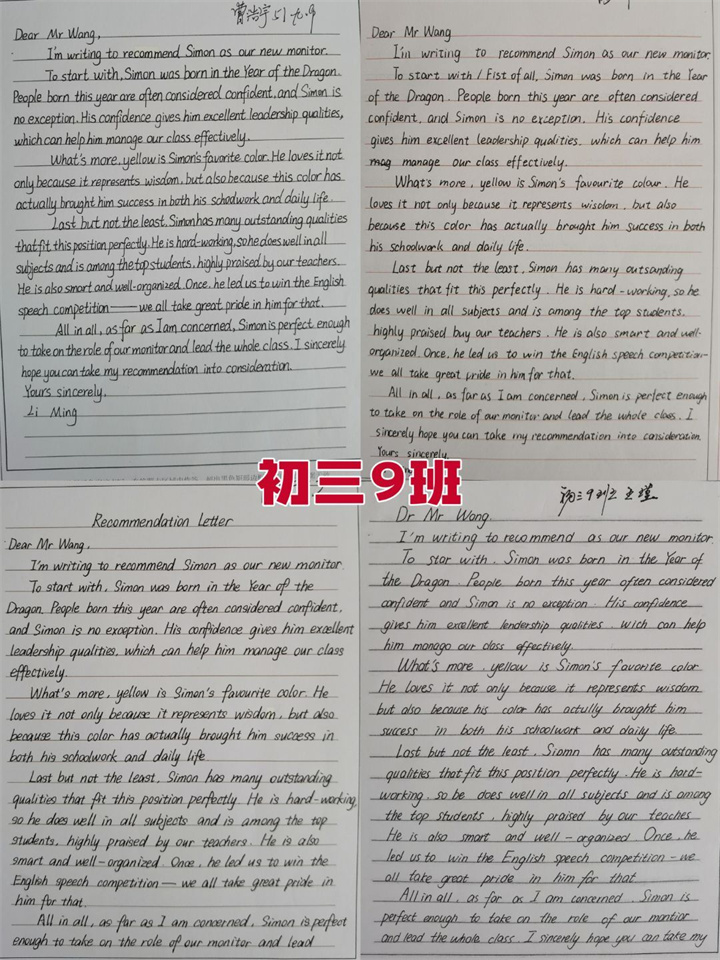 曹浩宇 51 九.9
Dear Mr Wang,
I'm writing to recommend Simon as our new monitor.
To start with, Simon was born in the Year of the Dragon.
People born this year are often considered confident, and Simon is
no exception. His confidence gives him excellent leadership qualities,
which can help him manage our class effectively.
What's more, yellow is Simon's favorite color. He loves it not
only because it represents wisdom, but also because this color has
actually brought him success in both his schoolwork and daily life.
Last but not the least, Simon has many outstanding qualities
that fit this position perfectly. He is hard-working, so he does well in all
subjects and is among the top students, highly praised by our teachers.
He is also smart and well-organized. Once, he led us to win the English
speech competition — we all take great pride in him for that.
All in all, as far as I am concerned, Simon is perfect enough
to take on the role of our monitor and lead the whole class. I sincerely
hope you can take my recommendation into consideration.
Yours sincerely,
Li Ming
Dear Mr Wang
I'm writing to recommend Simon as our new monitor
To start with / Fist of all, Simon was born in the Year
of the Dragon. People born this year are often considered
confident, and Simon is no exception. His confidence
gives him excellent leadership qualities, which can help him
mag manage our class effectively.
What's more, yellow is Simon's favourite colour. He
loves it not only because it represents wisdom, but also
because this color has actually brought him success in both
his schoolwork and daily life.
Last but not the least, Simon has many outsanding
qualities that fit this perfectly. He is hard-working, so he
does well in all subjects and is among the top students,
highly praised buy our teachers. He is also smart and well-
organized. Once, he led us to win the English speech competition-
we all take great pride in him for that.
All in all, as far as I am concerned, Simon is perfect enough
to take on the role of our monitor and lead the whole class. I
sincerely hope you can take my recommendation into consideration.
Yours sincerely,
初三9班
Recommendation Letter
Dear Mr Wang,
I'm writing to recommend Simon as our new monitor.
To start with, Simon was born in the Year of the
Dragon. People born this year are often considered confident,
and Simon is no exception. His confidence gives him excellent
leadership qualities, which can help him manage our class
effectively.
What's more, yellow is Simon's favourite color. He
loves it not only because it represents wisdom, but also
because this color has actually brought him success in
both his schoolwork and daily life
Last but not the least, Simon has many outstanding
qualities that fit this position perfectly. He is hard-working,
so he does well in all subjects and is among the top
students, highly praised by our teachers. He is also
smart and well-organized. Once, he led us to win the
English speech competition — we all take great pride in
him for that.
All in all, as far as I am concerned, Simon is perfect
enough to take on the role of our monitor and lead
初三9班 王瑾
Dr Mr Wang.
I'm writing to recommend as our new monitor.
To star with, Simon was born in the Year of
the Dragon. People born this year often considered
confident and Simon is no exception. His confidence
gives him excellent lendership qualities, wich can help
him manago our class effectively.
What's more, yellow is Simon's favorite color
He loves it not only because it represents wisdom
but also because his color has actully brought him
success in both his schoolwork and daily life.
Last but not the least, Siomn has many outstanding
qualities that fit this position perfectly. He is hard-
working, so be does well in all subjects and is among
the top students, highly praised by our teaches
He is also smart and well-organized. Once, he
led us to win the English speech competition - we
all take great pride in him for that
All in all, as far as I am concerned, Simon is
perfect enough to take on the role of our montior
and lead the whole class. I sincerely hope you can take my